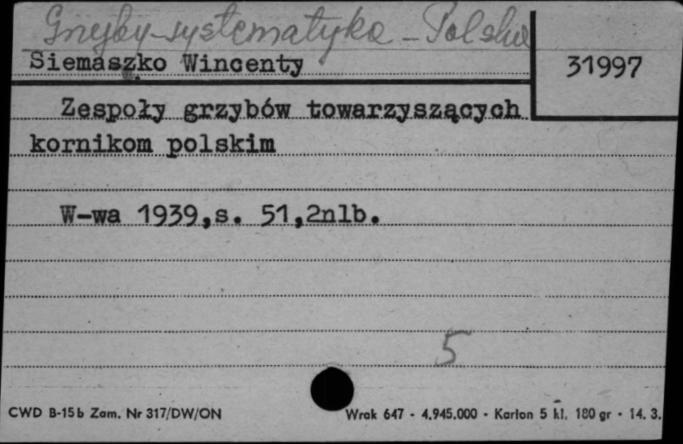 Grzyby-systematyka - Polskie
Siemaszko Wincenty
31997
Zespoły grzybów towarzyszących
kornikom polskim
W-wa 1939,s. 51,2nlb.
5
CWD B-15b Zam. Nr 317/DW/ON
Wrak 647 - 4.945.000 - Karton 5 kl. 180 gr - 14. 3.